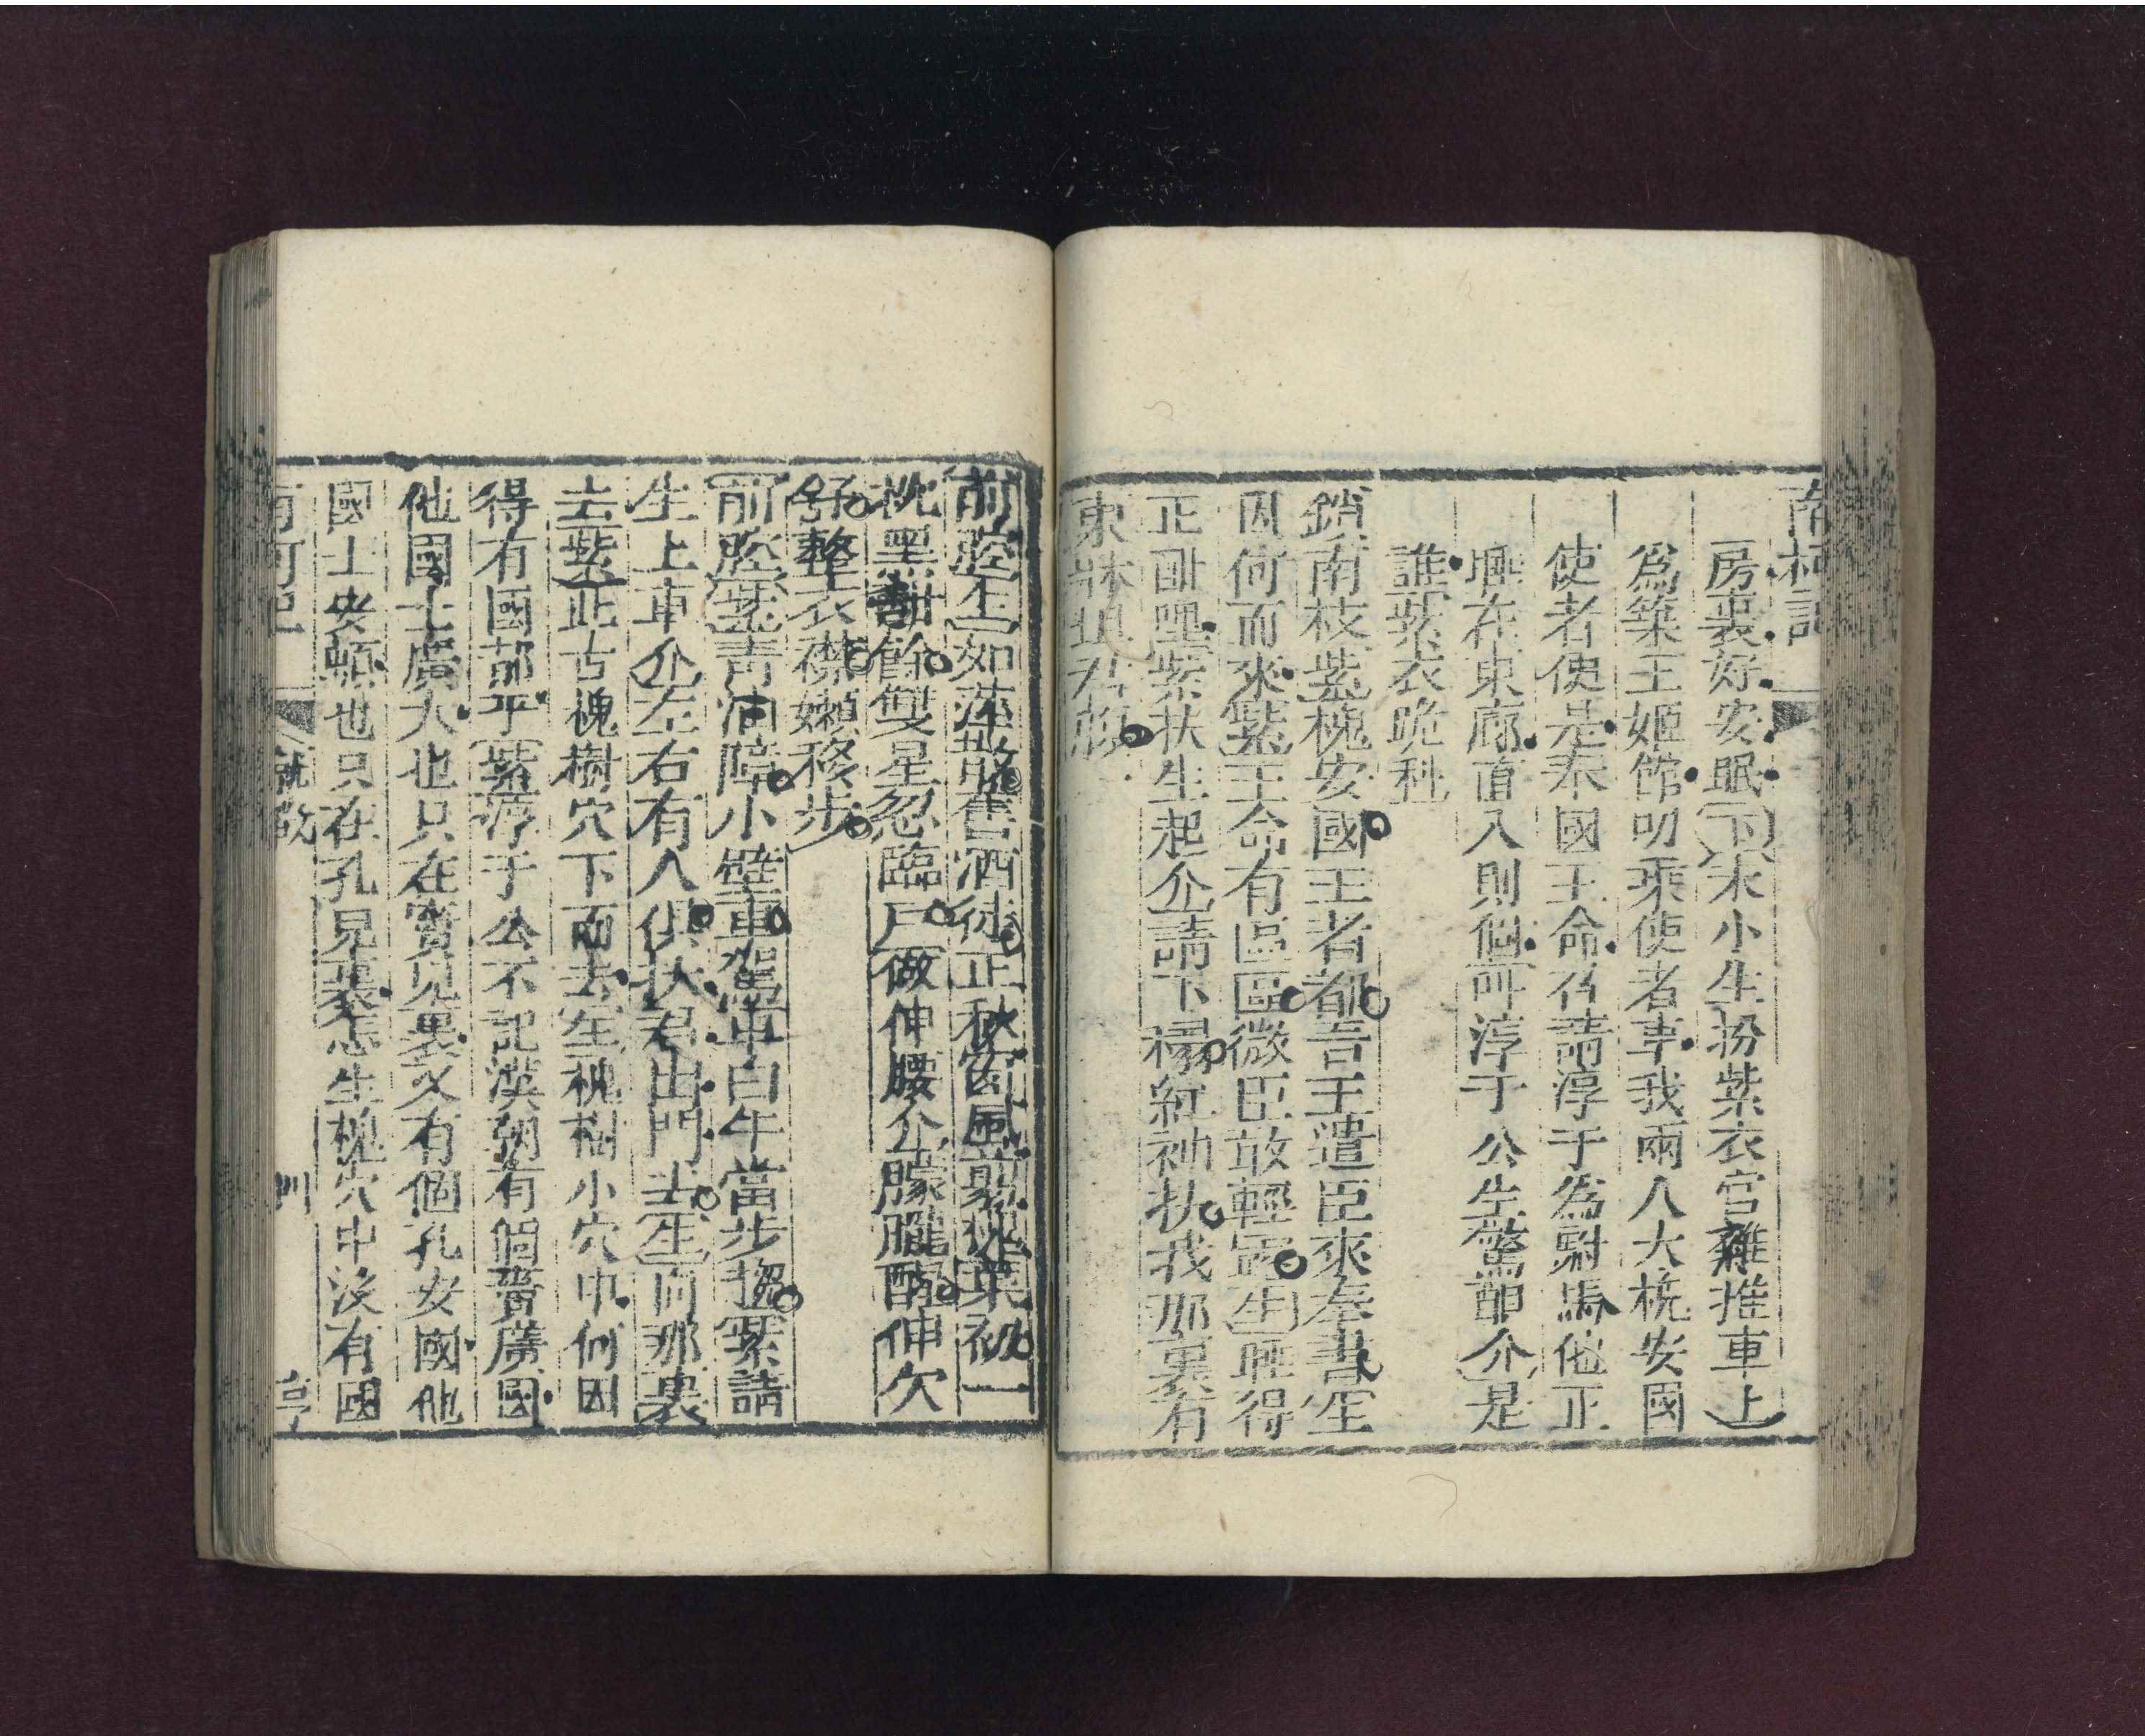 南柯記
房裏好安眠下末小生扮紫衣官雜推車上
爲築王姬館叨乘使者車我兩人大槐安國
使者便是奉國王命召請淳于爲駙馬他正
睡在東廊直入則個叫淳于公生驚醒介是
誰紫衣跪科
鎖南枝紫槐安國王者都吾王遣臣來奉書生
因何而來紫王命有區區微臣敢輕露生睡得
正酣嘿紫扶生起介請下榻紅袖扶我那裏有
東牀坦君顧
前腔生如萍散舊酒徒正秋窗風剪桃葉初一
枕黑甜餘雙星忽臨戶做伸腰介朦朧醒伸欠
舒整衣襟嬾移步
前腔紫青油障小壁車駕車白牛當步趨紫請
生上車介左右有人俱扶君出門去生向那裏
去紫此古槐樹穴下而去生槐樹小穴中何因
得有國都乎紫淳于公不記漢朝有個竇廣國
他國土廣大也只在竇兒裏又有個孔安國他
國土安頓也只在孔兒裏怎生槐穴中沒有國
南柯記 就徵 卅 亭